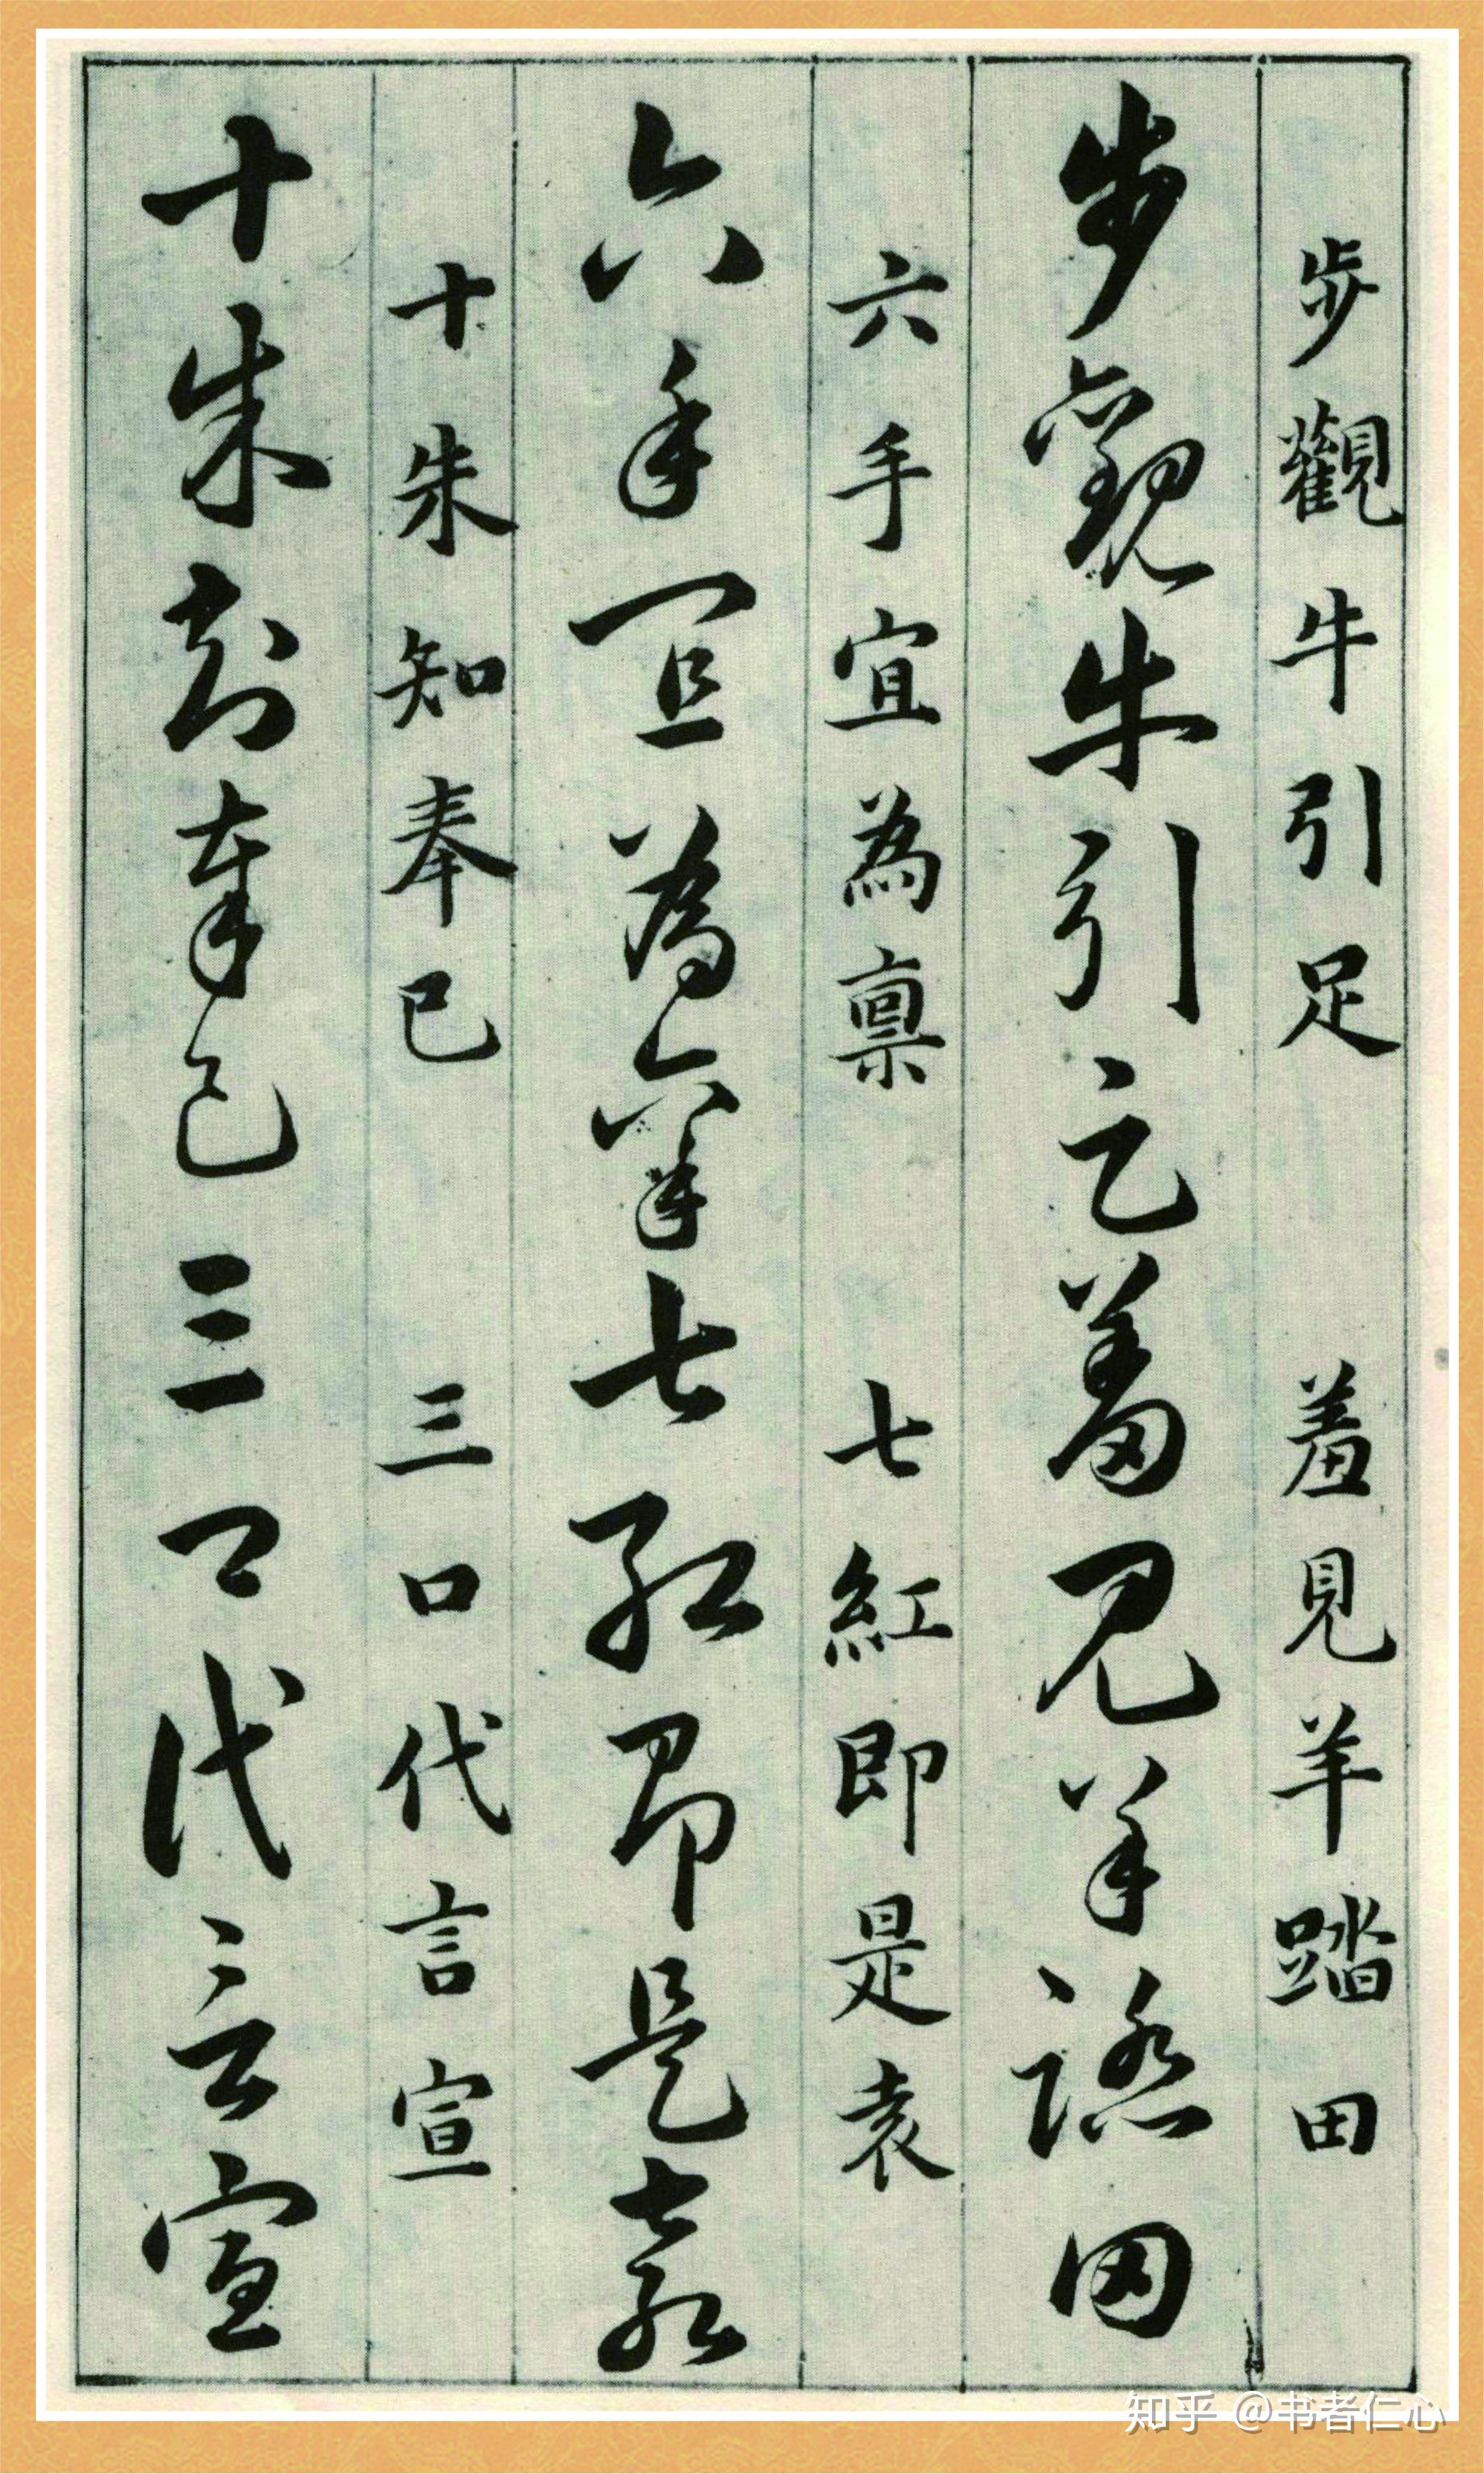 步觀牛引足 羞見羊踏田
步觀牛引足羞見羊踏田
六手宜為稟 七紅即是袁
六手宜為稟七紅即是袁
十朱知奉已 三口代言宣
十朱知奉已三口代言宣
知乎 @书者仁心